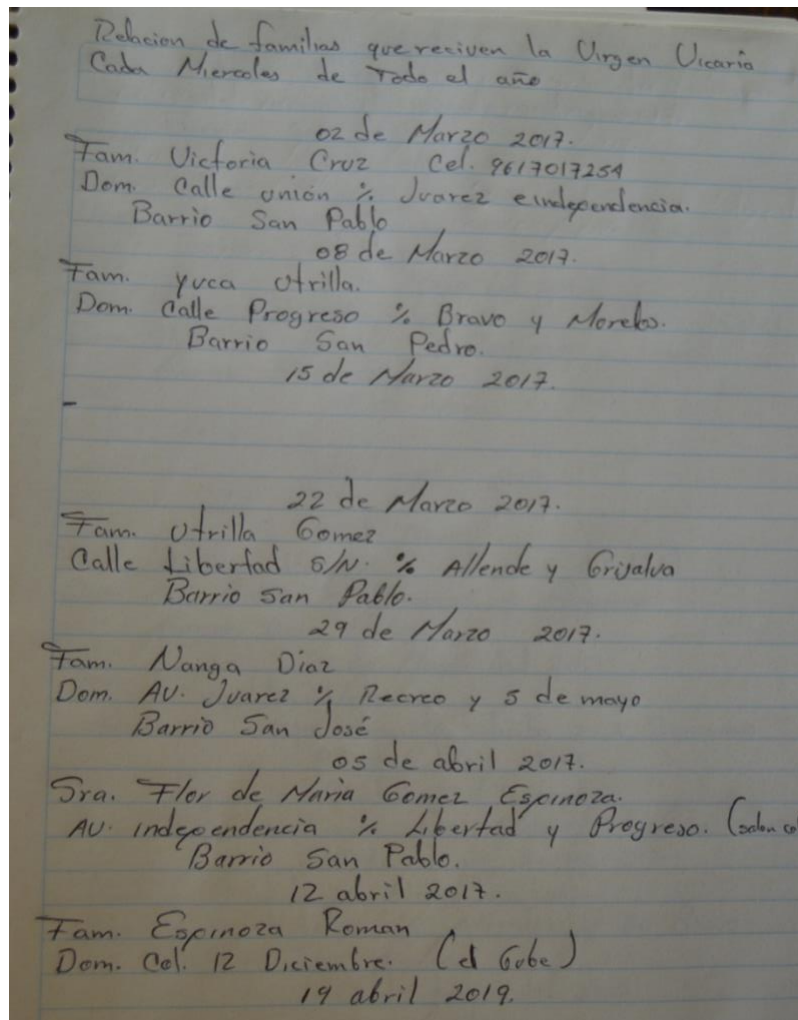 Relacion de familias que reciven la Virgen Vicaria
Cada Miercoles de Todo el año
02 de Marzo 2017.
Fam. Victoria Cruz Cel. 9617017254
Dom. Calle unión % Juarez e independencia.
Barrio San Pablo
08 de Marzo 2017.
Fam. yuca Utrilla.
Dom. Calle Progreso % Bravo y Morelos.
Barrio San Pedro.
15 de Marzo 2017.
-
22 de Marzo 2017.
Fam. Utrilla Gomez
Calle Libertad S/N. % Allende y Grijalva
Barrio San Pablo.
29 de Marzo 2017.
Fam. Nanga Diaz
Dom. AV. Juarez % Recreo y 5 de mayo
Barrio San José
05 de abril 2017.
Sra. Flor de Maria Gomez Espinoza.
AV. independencia % Libertad y Progreso. (salon
Barrio San Pablo.
12 abril 2017.
Fam. Espinoza Roman
Dom. Col. 12 Diciembre. (el Gube)
19 abril 2019.